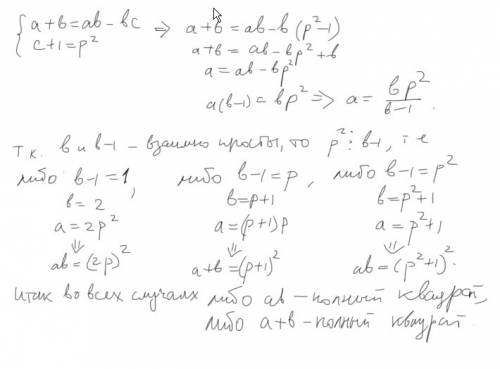 { a+b=ab-bc ⇒ a+b = ab-b(p²-1)
c+1=p² a+b = ab-bp²+b
a = ab-bp²
a(b-1)=bp² ⇒ a = bp²/(b-1).
Т.к. b и b-1 - взаимно просты, то p² ⋮ b-1, т е
либо b-1=1, либо b-1=p, либо b-1=p²
b=2 b=p+1 b=p²+1
a=2p² a=(p+1)p a=p²+1
⇓ ⇓ ⇓
ab=(2p)² a+b=(p+1)² ab=(p²+1)².
Итак во всех случаях либо ab - полный квадрат,
либо a+b - полный квадрат.